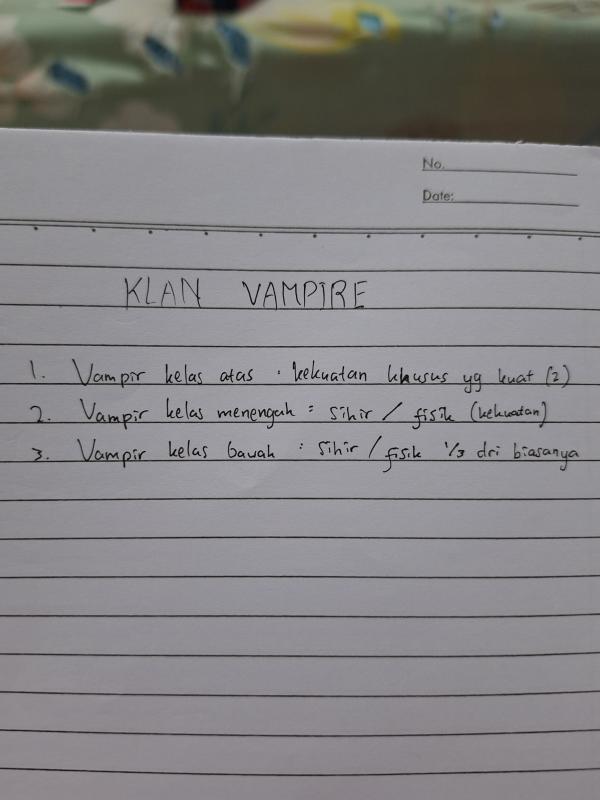 No.
Date:
KLAN VAMPIRE
1. Vampir kelas atas : kekuatan khusus yg kuat (2)
2. Vampir kelas menengah = sihir / fisik (kekuatan)
3. Vampir kelas bawah : sihir / fisik 1/3 dri biasanya